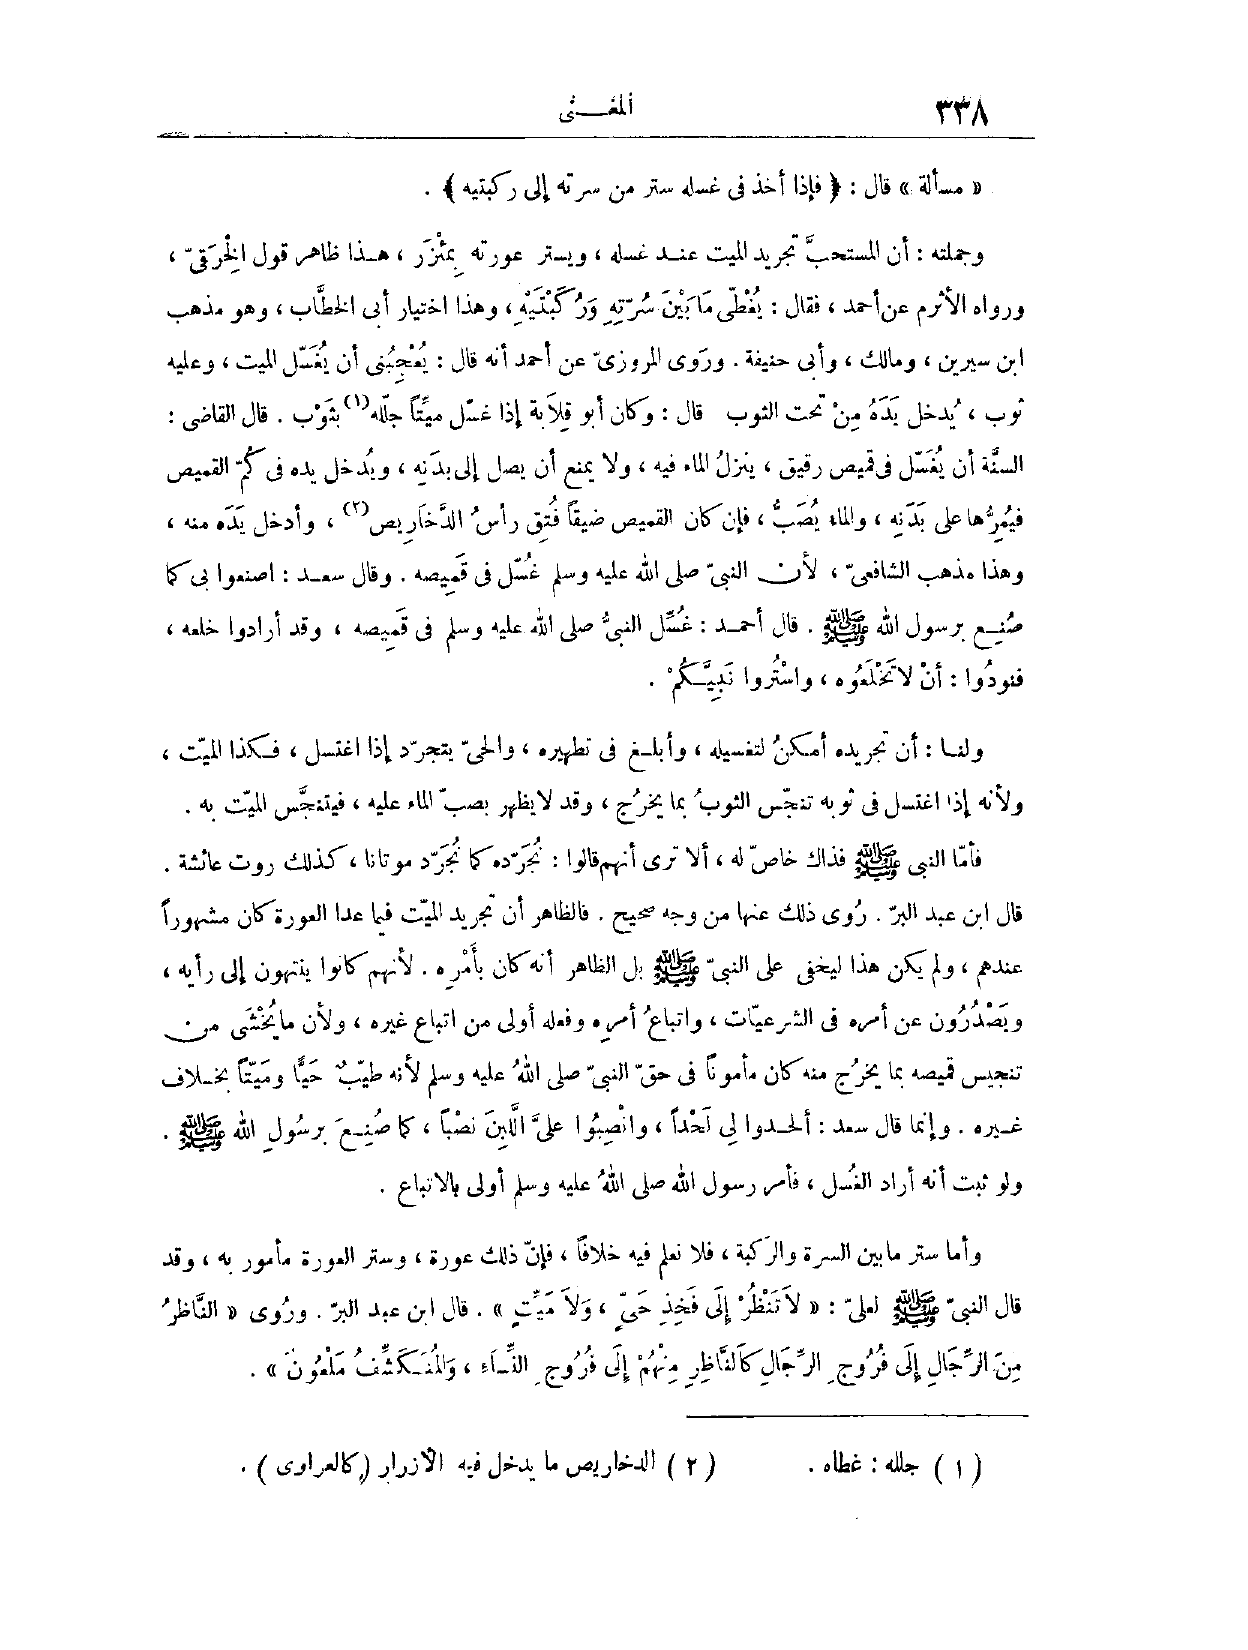 ٣٣٨
المغــنى
« مسألة » قال : ﴿ فإذا أخذ فى غسله ستر من سرته إلى ركبتيه ﴾ .
وجملته : أن المستحبَّ تجريد الميت عنـد غسله ، ويستر عورته بِمِئْزَر ، هـذا ظاهر قول الخِرَقىّ ،
ورواه الأثرم عن أحمد ، فقال : يُغْطّى مَا بَيْنَ سُرّتِهِ وَرُكْبَتَيْهِ ، وهذا اختيار أبى الخطَّاب ، وهو مذهب
ابن سيرين ، ومالك ، وأبى حنيفة . ورَوى المروزىّ عن أحمد أنه قال : يُعْجِبُنى أن يُغَسّل الميت ، وعليه
ثوب ، يُدخل يَدَهُ مِنْ تحت الثوب قال : وكان أبو قِلَابة إذا غسّل ميِّتاً جلّله(١) بثَوْب . قال القاضى :
السنَّة أن يُغَسّل فى قميص رقيق ، ينزلُ الماء فيه ، ولا يمنع أن يصل إلى بدَنِه ، ويُدخل يده فى كُمّ القميص
فيُمِرُّها على بَدَنِهِ ، والماء يُصَبُّ ، فإن كان القميص ضيقاً فُتِق رأسُ الدَّخَارِيص(٢) ، وأدخل يَدَه منه ،
وهذا مذهب الشافعىّ ، لأن النبىّ صلى الله عليه وسلم غُسّل فى قَمِيصه . وقال سعـد : اصنعوا بى كما
صُنِـع برسول الله ﷺ . قال أحمـد : غُسِّل النبىُّ صلى الله عليه وسلم فى قَمِيصه ، وقد أرادوا خلعه ،
فنودُوا : أنْ لا تَخْلَعُوه ، واسْتُروا نَبِيَّـكُمْ .
ولنـا : أن تجريده أمـكنُ لتغسيله ، وأبلـغ فى تطهيره ، والحىّ يتجرّد إذا اغتسل ، فـكذا الميّت ،
ولأنه إذا اغتسل فى ثوبه تنجّس الثوبُ بما يخرُج ، وقد لا يظهر بصبّ الماء عليه ، فيتنجَّس الميّت به .
فأمّا النبى ﷺ فذاك خاصّ له ، ألا ترى أنهم قالوا : نُجَرّده كما نُجَرّد موتانا ، كذلك روت عائشة .
قال ابن عبد البرّ . رُوى ذلك عنها من وجه صحيح . فالظاهر أن تجريد الميّت فيما عدا العورة كان مشهوراً
عندهم ، ولم يكن هذا ليخفى على النبىّ ﷺ بل الظاهر أنه كان بأَمْرِه . لأنهم كانوا ينتهون إلى رأيه ،
ويَصْدُرُون عن أمره فى الشرعيّات ، واتباعُ أمرِه وفعله أولى من اتباع غيره ، ولأن ما يُخْشَى من
تنجيس قميصه بما يخرُج منه كان مأموناً فى حقّ النبىّ صلى اللهُ عليه وسلم لأنه طيّبٌ حَيًّا ومَيّتاً بخـلاف
غـيره . وإنما قال سعد : ألحـدوا لِى لَحْداً ، وانْصِبُوا علىَّ الَّلبِنَ نصْباً ، كما صُنِـعَ برسُولِ الله ﷺ .
ولو ثبت أنه أراد الغُسل ، فأمر رسول الله صلى اللهُ عليه وسلم أولى بالاتباع .
وأما ستر ما بين السرة والرَكبة ، فلا نعلم فيه خلافاً ، فإنّ ذلك عورة ، وستر العورة مأمور به ، وقد
قال النبىّ ﷺ لعلىّ : « لَا تَنْظُرْ إِلَى فَخِذِ حَىّ ، وَلَا مَيِّتٍ » . قال ابن عبد البرّ . ورُوى « النَّاظرُ
مِنَ الرِّجَالِ إِلَى فُرُوجِ الرِّجَالِ كَالنَّاظِرِ مِنْهُمْ إِلَى فُرُوجِ النِّسَاء ، وَالْمُتَـكَشِّفُ مَلْعُونٌ » .
( ١ ) جلله : غطاه . ( ٢ ) الدخاريص ما يدخل فيه الأزرار ( كالعراوى ) .